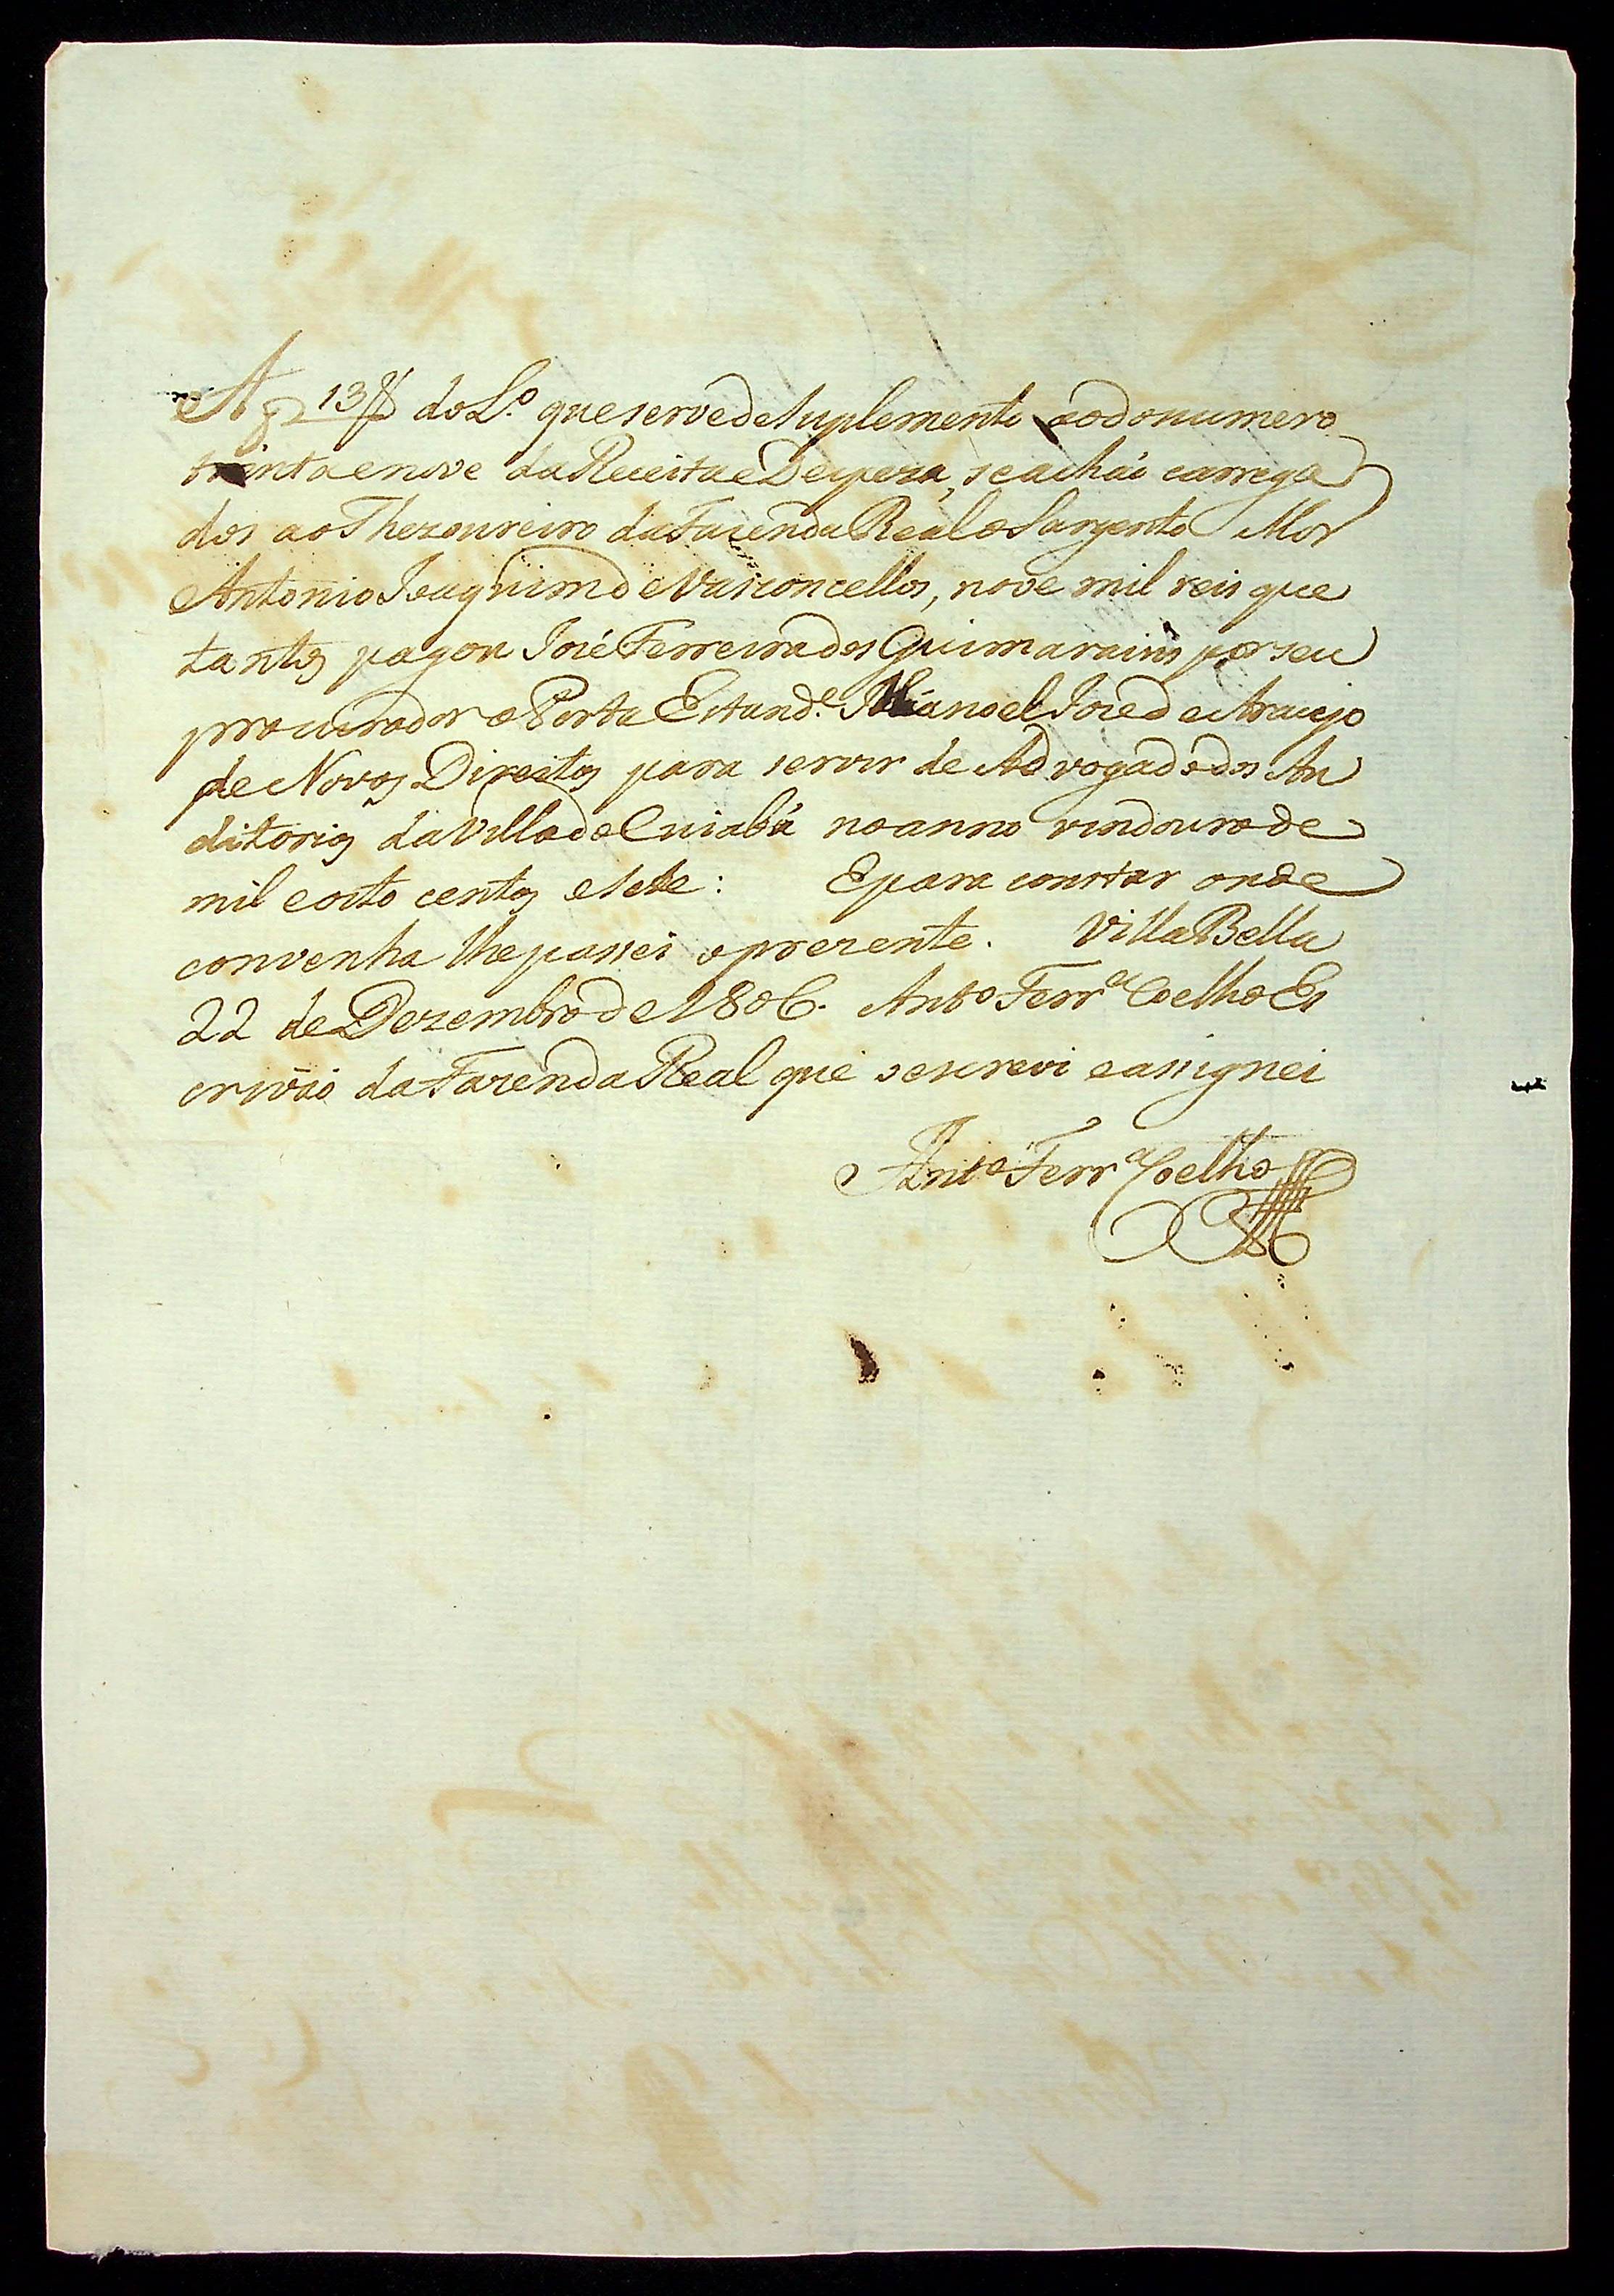 A f 13 do L.º que serve de Suplemento ao do numero
trinta e nove da Receita e Despeza, se achaõ carrega
dos ao Thezoureiro da Fazenda Real o Sargento Mor
Antonio Joaquim de Vasconcellos, nove mil reis que
tantos pagou José Ferreira dos Guimarains por seu
procurador o Porta Estand.e Manoel Jose de Araujo
de Novos Direitos para servir de Advogado dos Au
ditorios da Villa do Cuiabá no anno vindouro de
mil e oito centos e sete: E para constar onde
convenha lhe passei o prezente. Villa Bella
22 de Dezembro de 1806. Ant.o Ferr.a Coelho Es
crivaõ da Fazenda Real que o escrevi e assignei
Ant.o Ferr.a Coelho